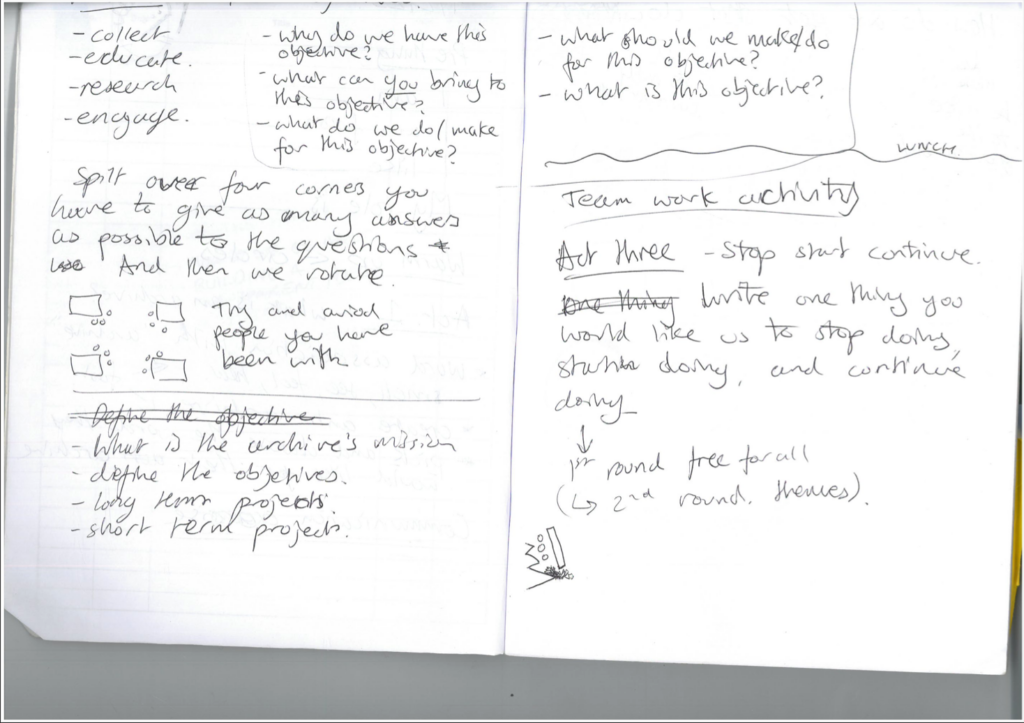 - collect
- educate.
- research
- engage.
- why do we have this
objective?
- what can you bring to
this objective?
- what do we do/make
for this objective?
Spilt over four corners you
have to give as many answers
as possible to the questions
And then we rotate.
Try and avoid
people you have
been with
- Define the objective
- What is the archive's mission
- define the objetives.
- long term projects.
- short term project.
- what should we make/do
for this objective?
- What is this objective?
LUNCH
Team work activity
Act three - Stop start continue.
One thing Write one thing you
would like us to stop doing,
start doing, and continue
doing
1st round free for all
(↳ 2nd round. themes).